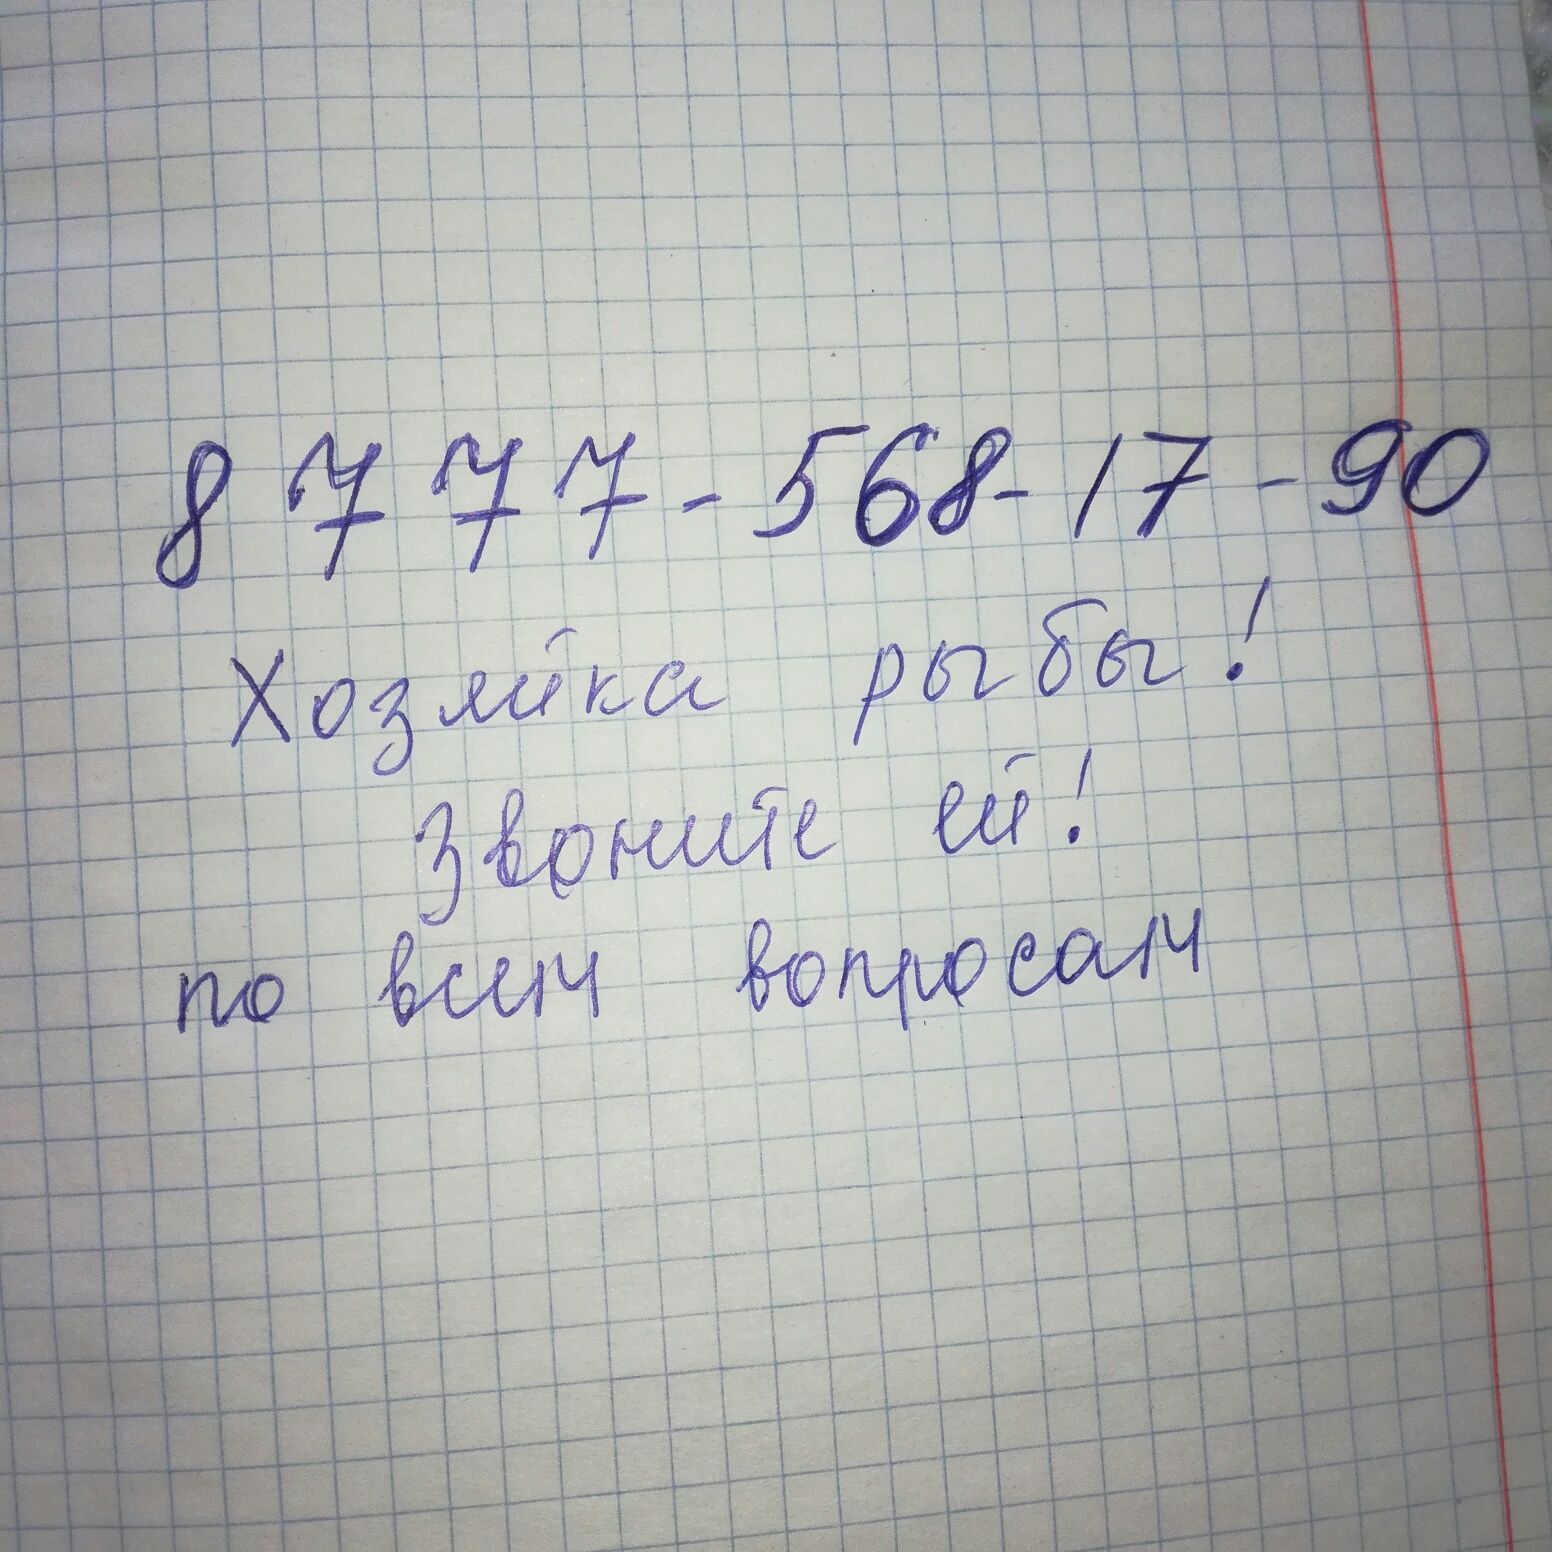 8 777-568-17-90
Хозяйка рыбы!
Звоните ей!
по всем вопросам